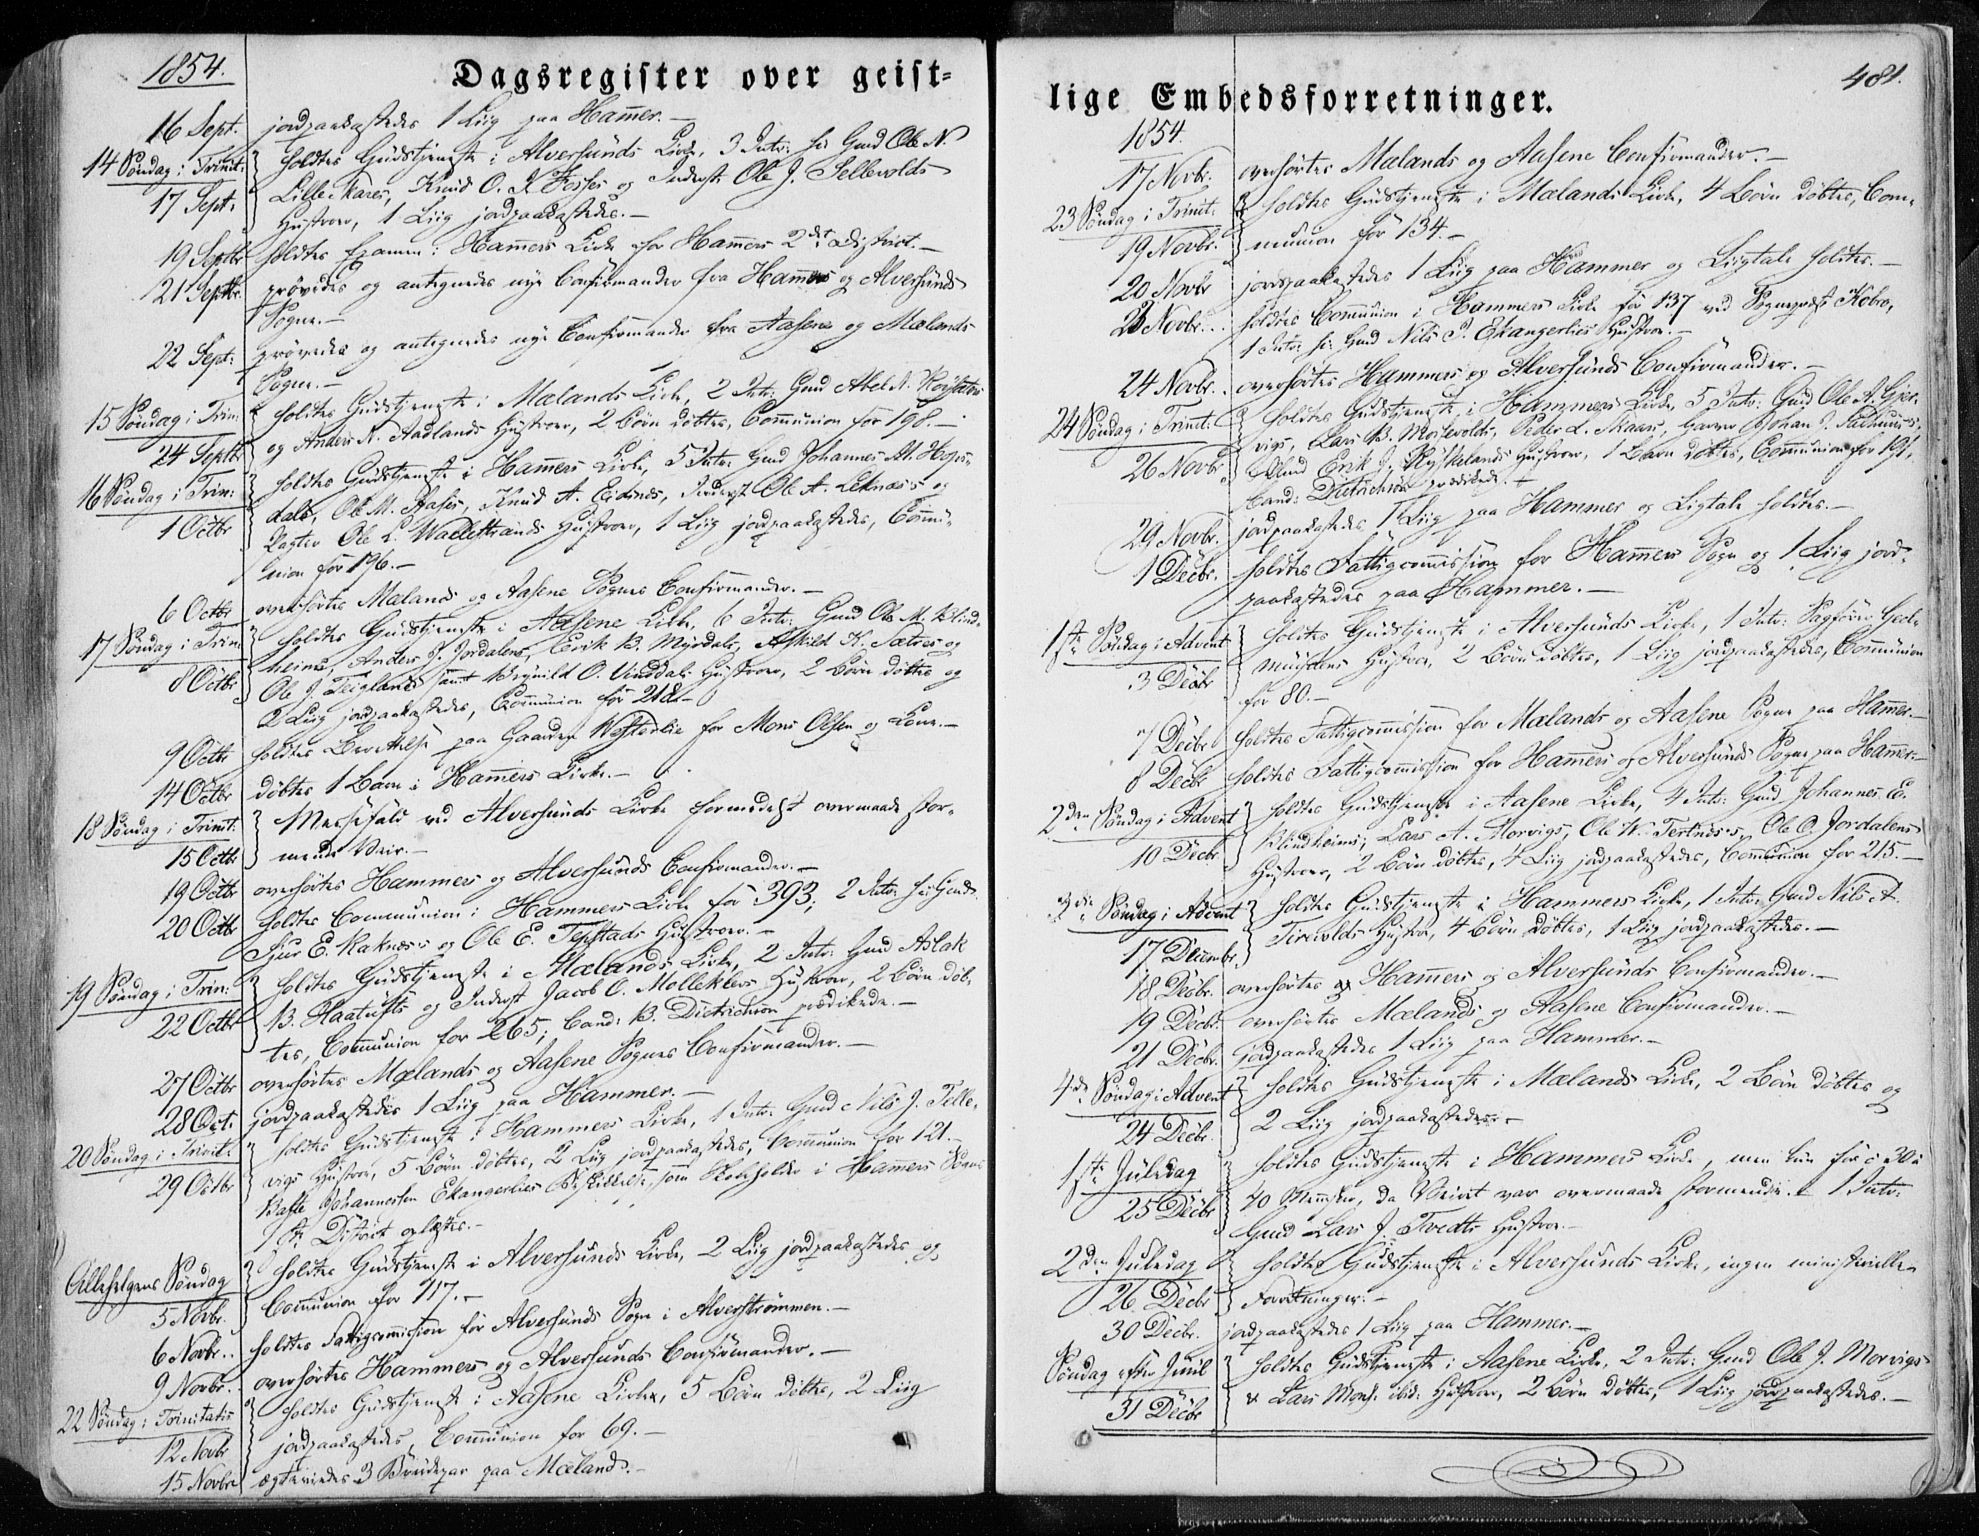 1854.
Dagsregister over geist=
16 Sept. jordpaakastedes 1 Liig paa Ham̄er.—
14 Søndag i Trinit: holdtes Gudstjeneste i Alversunds Kirke, 3 Intr: h: Gmd Ole N.
17 Sept: Lille Kares, Knud O. Fosses og Inderst Ole J. Sellevolds
Hustroer, 1 Liig jordpaakastedes.—
19 Septbr holdtes Examen i Ham̄ers Kirke for Ham̄ers 2det District.—
21 Septbr. prøvedes og antegnedes nye Confirmander fra Ham̄ers og Alversunds
Sogne.—
22 Sept: prøvedes og antegnedes nye Confirmander fra Aasene og Mælands
Sogne.—
15 Søndag i Trin: holdtes Gudstjeneste i Mælands Kirke, 2 Intr: Gmd Abel N.
24 Septbr og Anders N. Aadlands Hustroer, 2 Børn døbtes, Communion for 198.—
16 Søndag i Trin: holdtes Gudstjeneste i Ham̄ers Kirke, 5 Intr: Gmd Johannes M. Hops-
1 Octbr dals, Ole M. Hases, Knud A. Eidsnes, Inderst Ole A. Leknæs's og
Pagter Ole L. Waagestrands Hustroer, 1 Liig jordpaakastedes, Com̄u-
nion for 196.—
6 Octbr overhørtes Mælands og Aasene Sognes Confirmander.—
17 Søndag i Trin holdtes Gudstjeneste i Aasene Kirke, 6 Intr: Gmd Ole M. Blind-
8 Octbr heims, Anders J. Jordalens, Erik B. Myrdals, Askild K. Sætres og
Ole J. Teiglands samt Brynild O. Vinddals Hustroer, 2 Børn døbtes og
2 Liig jordpaakastedes, Communion for 218.—
9 Octbr holdtes Berettelse paa Gaarden Westerlie for Mons Olsen og Kone.—
14 Octbr døbtes 1 Barn i Ham̄ers Kirke.—
18 Søndag i Trinit: Messefald ved Alversunds Kirke formedelst overmaade stor-
15 Octbr mende Veir.—
19 Octbr overhørtes Hammers og Alversunds Confirmander.—
20 Octbr holdtes Communion i Hammers Kirke for 393; 2 Intr: h: Gmd
Sjur E. Raknæs's og Ole E. Tepstads Hustroer.—
19 Søndag i Trin: holdtes Gudstjeneste i Mælands Kirke, 2 Intr: Gmd Aslak
22 Octbr B. Haatufts og Inderst Jacob O. Mollekleves Hustroer, 2 Børn døb-
tes, Communion for 265; Cand: B. Dietrichson prædikede.—
27 Octbr overhørtes Mælands og Aasene Sognes Confirmander.—
28 Oct: jordpaakastedes 1 Liig paa Hammer.—
20 Søndag i Trinit: holdtes Gudstjeneste i Hammers Kirke, 1 Intr: Gmd Nils J. Telle-
29 Octbr vigs Hustroe, 5 Børn døbtes, 2 Liig jordpaakastedes, Communion for 121.—
Johannessen Ekangerlies Beskikkelse som Skoleholder i Hammers Sogns
1ste District oplæstes.—
Allehelgens Søndag holdtes Gudstjeneste i Alversunds Kirke, 2 Liig jordpaakastedes og
5 Novbr. Communion for 117.—
6 Novbr. holdtes Fattigcommission for Alversunds Sogn i Alverstrømmen.—
9 Novbr. overhørtes Hammers og Alversunds Confirmander.—
22 Søndag i Trinitatis holdtes Gudstjeneste i Aasene Kirke, 5 Børn døbtes, 2 Liig
12 Novbr jordpaakastedes, Communion for 69.—
15 Novbr ægteviedes 3 Brudepar paa Mæland.—
lige Embedsforretninger.
481.
1854.
17 Novbr. overhørtes Mælands og Aasene Confirmander.—
23 Søndag i Trinit: holdtes Gudstjeneste i Mælands Kirke, 4 Børn døbtes, Com-
19 Novbr. munion for 134.—
20 Novbr jordpaakastedes 1 Liig paa Hammer og Liigtale holdtes.—
23 Novbr. holdtes Communion i Hammers Kirke for 137 ved Sognepræst Kobro,
1 Intr: h: Gmd Nils P. Ekangerlies Hustroe.—
24 Novbr. overhørtes Hammers og Alversunds Confirmander.—
24 Søndag i Trinit: holdtes Gudstjeneste i Hammers Kirke, 5 Intr: Gmd Ole A. Gjer-
26 Novbr vigs, Lars B. Mossevolds, Peder L. Skares, Garver Johan J.
Gmd Erik J. Hustroer, 1 Barn døbtes, Communion for 191,
Cand: Dietrichson prædikede.—
29 Novbr. jordpaakastedes 1 Liig paa Hammer og Ligtale holdtes.—
1 Decbr. holdtes Fattigcommission for Ham̄ers Sogn og 1 Liig jord-
paakastedes paa Hammer.—
1ste Søndag i Advent holdtes Gudstjeneste i Alversunds Kirke, 1 Intr: Sagfører Geel-
3 Decbr muydens Hustroe, 2 Børn døbtes, 1 Liig jordpaakastedes, Communion
for 80.—
7 Decbr holdtes Fattigcom̄ission for Mælands og Aasene Sogne paa Ham̄er.—
8 Decbr holdtes Fattigcom̄ission for Ham̄ers og Alversunds Sogne paa Ham̄er.—
2den Søndag i Advent holdtes Gudstjeneste i Aasene Kirke, 4 Intr: Gmd Johannes E.
10 Decbr Blindheims, Lars A. Morvigs, Ole W. Tertnæs's, Ole O. Jordalens
Hustroer, 2 Børn døbtes, 4 Liig jordpaakastedes, Communion for 215.—
3die Søndag i Advent holdtes Gudstjeneste i Hammers Kirke, 1 Intr: Gmd Nils A.
17 Decembr Tirevolds Hustroe, 4 Børn døbtes, 1 Liig jordpaakastedes.—
18 Decbr. overhørtes Ham̄ers og Alversunds Confirmander.—
19 Decbr. overhørtes Mælands og Aasene Confirmander.—
21 Decbr. jordpaakastedes 1 Liig paa Hammer.—
4de Søndag i Advent holdtes Gudstjeneste i Mælands Kirke, 2 Børn døbtes og
24 Decbr. 2 Liig jordpaakastedes.—
1ste Juledag holdtes Gudstjeneste i Hammers Kirke, men kun for c 30 à
25 Decbr 40 Mennesker, da Veiret var overmaade stormende. 1 Intr:
Gmd Lars J. Tvedts Hustroe.—
2den Juledag holdtes Gudstjeneste i Alversunds Kirke, ingen ministerielle
26 Decbr Forretninger.—
30 Decbr. jordpaakastedes 1 Liig paa Hammer.—
Søndag efter Juul holdtes Gudstjeneste i Aasene Kirke, 2 Intr: Gmd Ole J. Morvigs
31 Decbr & Lars Mons. ibid. Hustroer, 2 Børn døbtes, 1 Liig jordpaakastedes.—